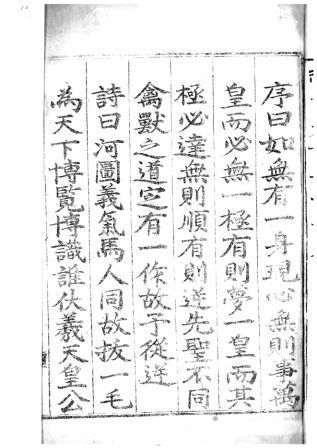 序曰如無有一身現心無則事萬
皇而必無一極有則夢一皇而其
極必達無則順有則逆先聖不同
禽獸之道定有一作故子從逆
詩曰河圖義氣馬人同故拔一毛
為天下博覽博識誰伏羲天皇公